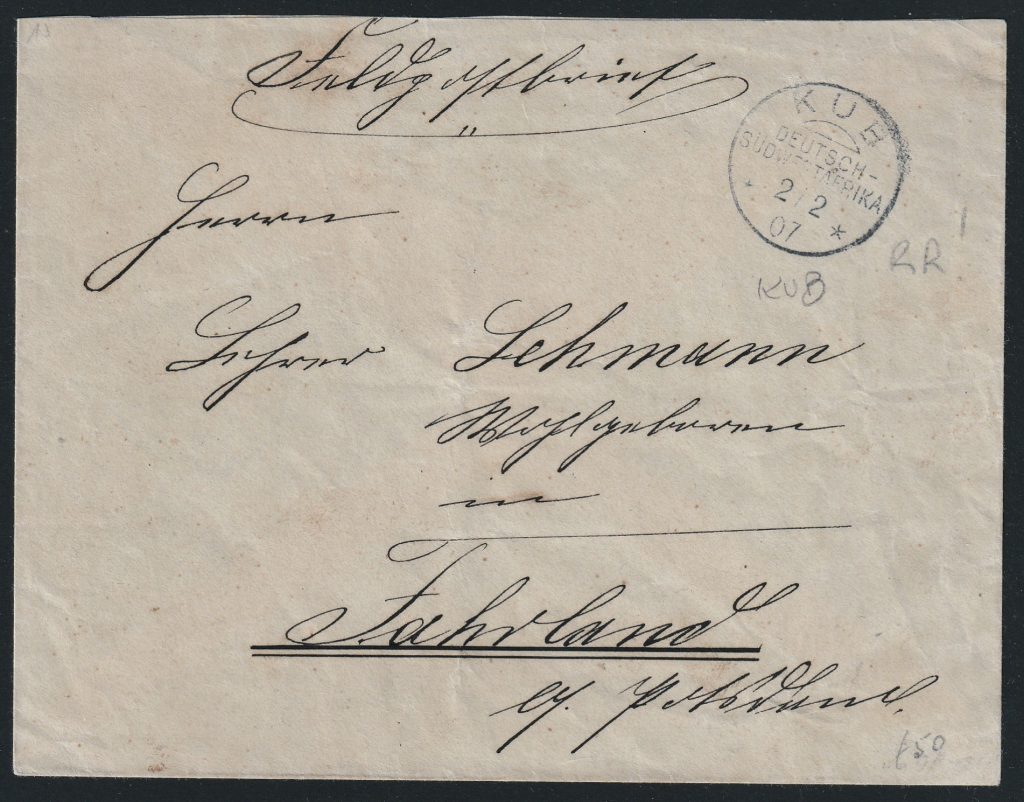 Feldpostbrief
KUB
DEUTSCH-
SÜDWESTAFRIKA
* 2/2 *
07
Herrn
RR
KUB
Lehrer Lehmann
Wohlgeboren
in
Fahrland
b/. Potsdam.